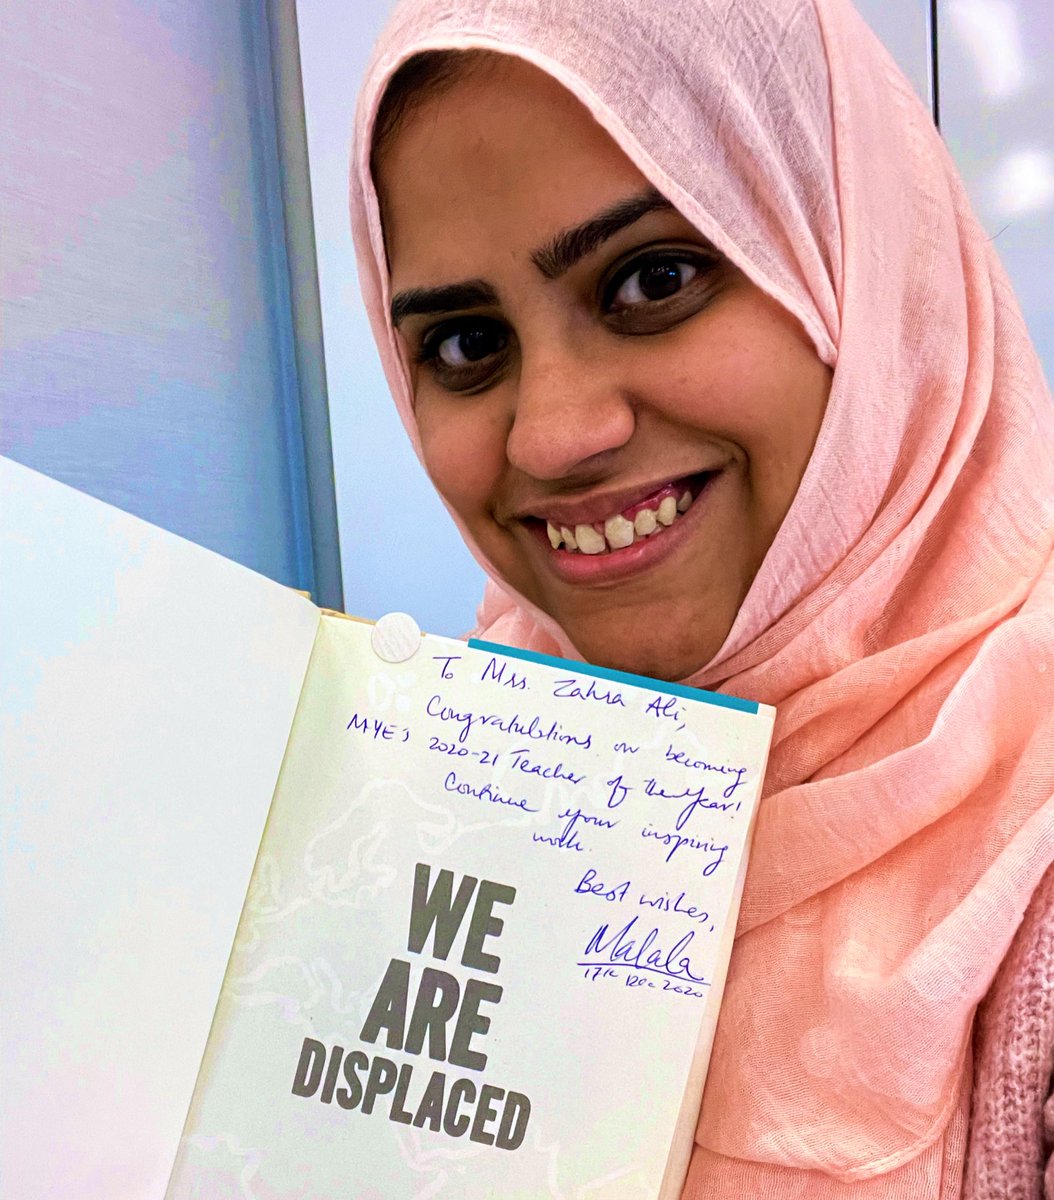 To Mrs. Zahra Ali,
Congratulations on becoming
MYE's 2020-21 Teacher of the Year!
Continue your inspiring
work.
Best wishes,
Malala
17th Dec 2020
WE
ARE
DISPLACED